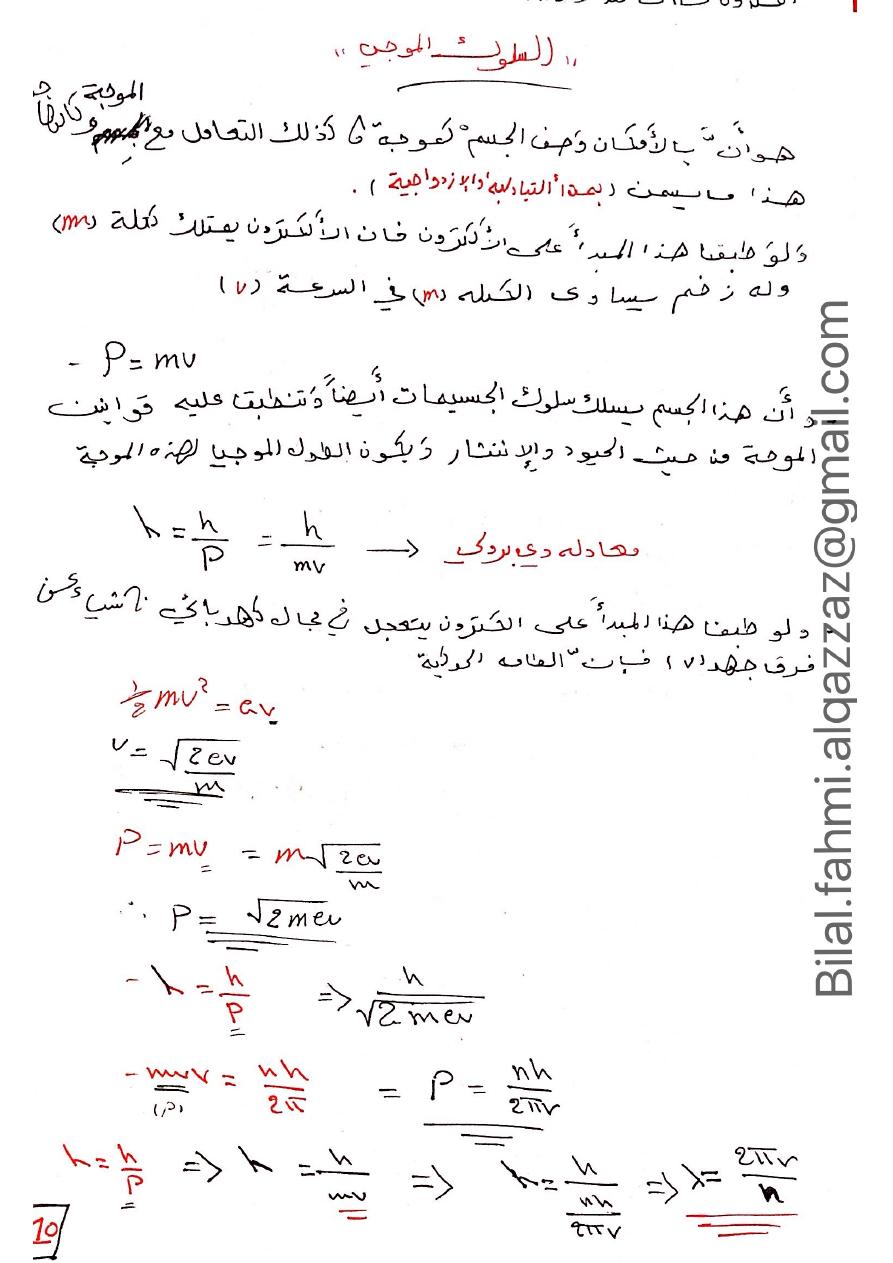 ,, السلوك الموجي ,,
هو أنّ بالأمكان وصف الجسم كموجة و كذلك التعامل مع الموجة وكأنها
هذا مايسمى (بمبدأ التبادلية والازدواجية) .
ولو طبقنا هذا المبدأ على الألكترون فان الألكترون يمتلك كتلة (m)
وله زخم سيساوي الكتله (m) في السرعة (v)
- P = mv
و أن هذا الجسم يسلك سلوك الجسيمات أيضاً وتنطبق عليه قوانين
الموجة من حيث الحيود والإنتشار ويكون الطول الموجي لهذه الموجة
λ = h/P = h/mv → معادله دي برولي
ولو طبقنا هذا المبدأ على الكترون يتعجل في مجال كهربائي ناشيء عن
فرق جهد (v) فإن الطاقه الحركية
½ mv² = ev
v = √(2ev/m)
P = mv = m√(2ev/m)
∴ P = √2mev
- λ = h/P => h/√2mev
- mvr = nh/2π = P = nh/2πr
(P)
λ = h/P => λ = h/mv => λ = h/(nh/2πr) => λ = 2πr/n
10
Bilal.fahmi.alqazzaz@gmail.com